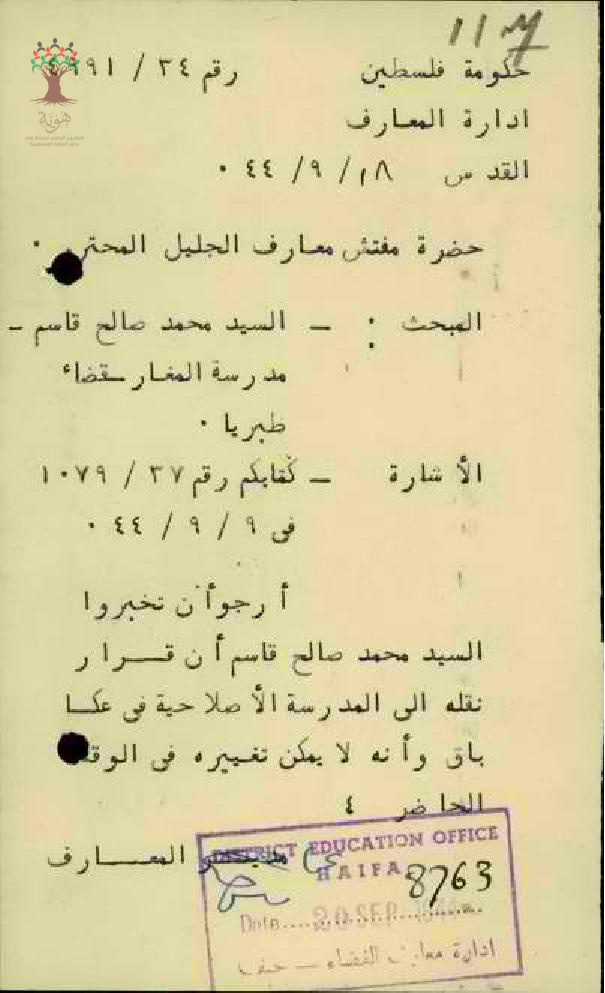 117
حكومة فلسطين رقم ٣٤ / ٤٩٩١
ادارة المعارف
القدس ١٨/ ٩/ ٤٤ ٠
هوية
حضرة مفتش معارف الجليل المحترم ٠
المبحث : ـ السيد محمد صالح قاسم ـ
مدرسة المغار ـ قضاء
طبريا ٠
الأشارة ـ كتابكم رقم ٣٧ / ١٠٧٩
في ٩ / ٩ / ٤٤ ٠
أرجو أن تخبروا
السيد محمد صالح قاسم أن قـــرار
نقله الى المدرسة الأصلاحية في عكـا
باق وأنه لا يمكن تغييره في الوقت
الحاضر ٤
مديـر المعـــارف
DISTRICT EDUCATION OFFICE
HAIFA
8763
Date 20 SEP 1944
ادارة معارف القضاء ـ حيفا